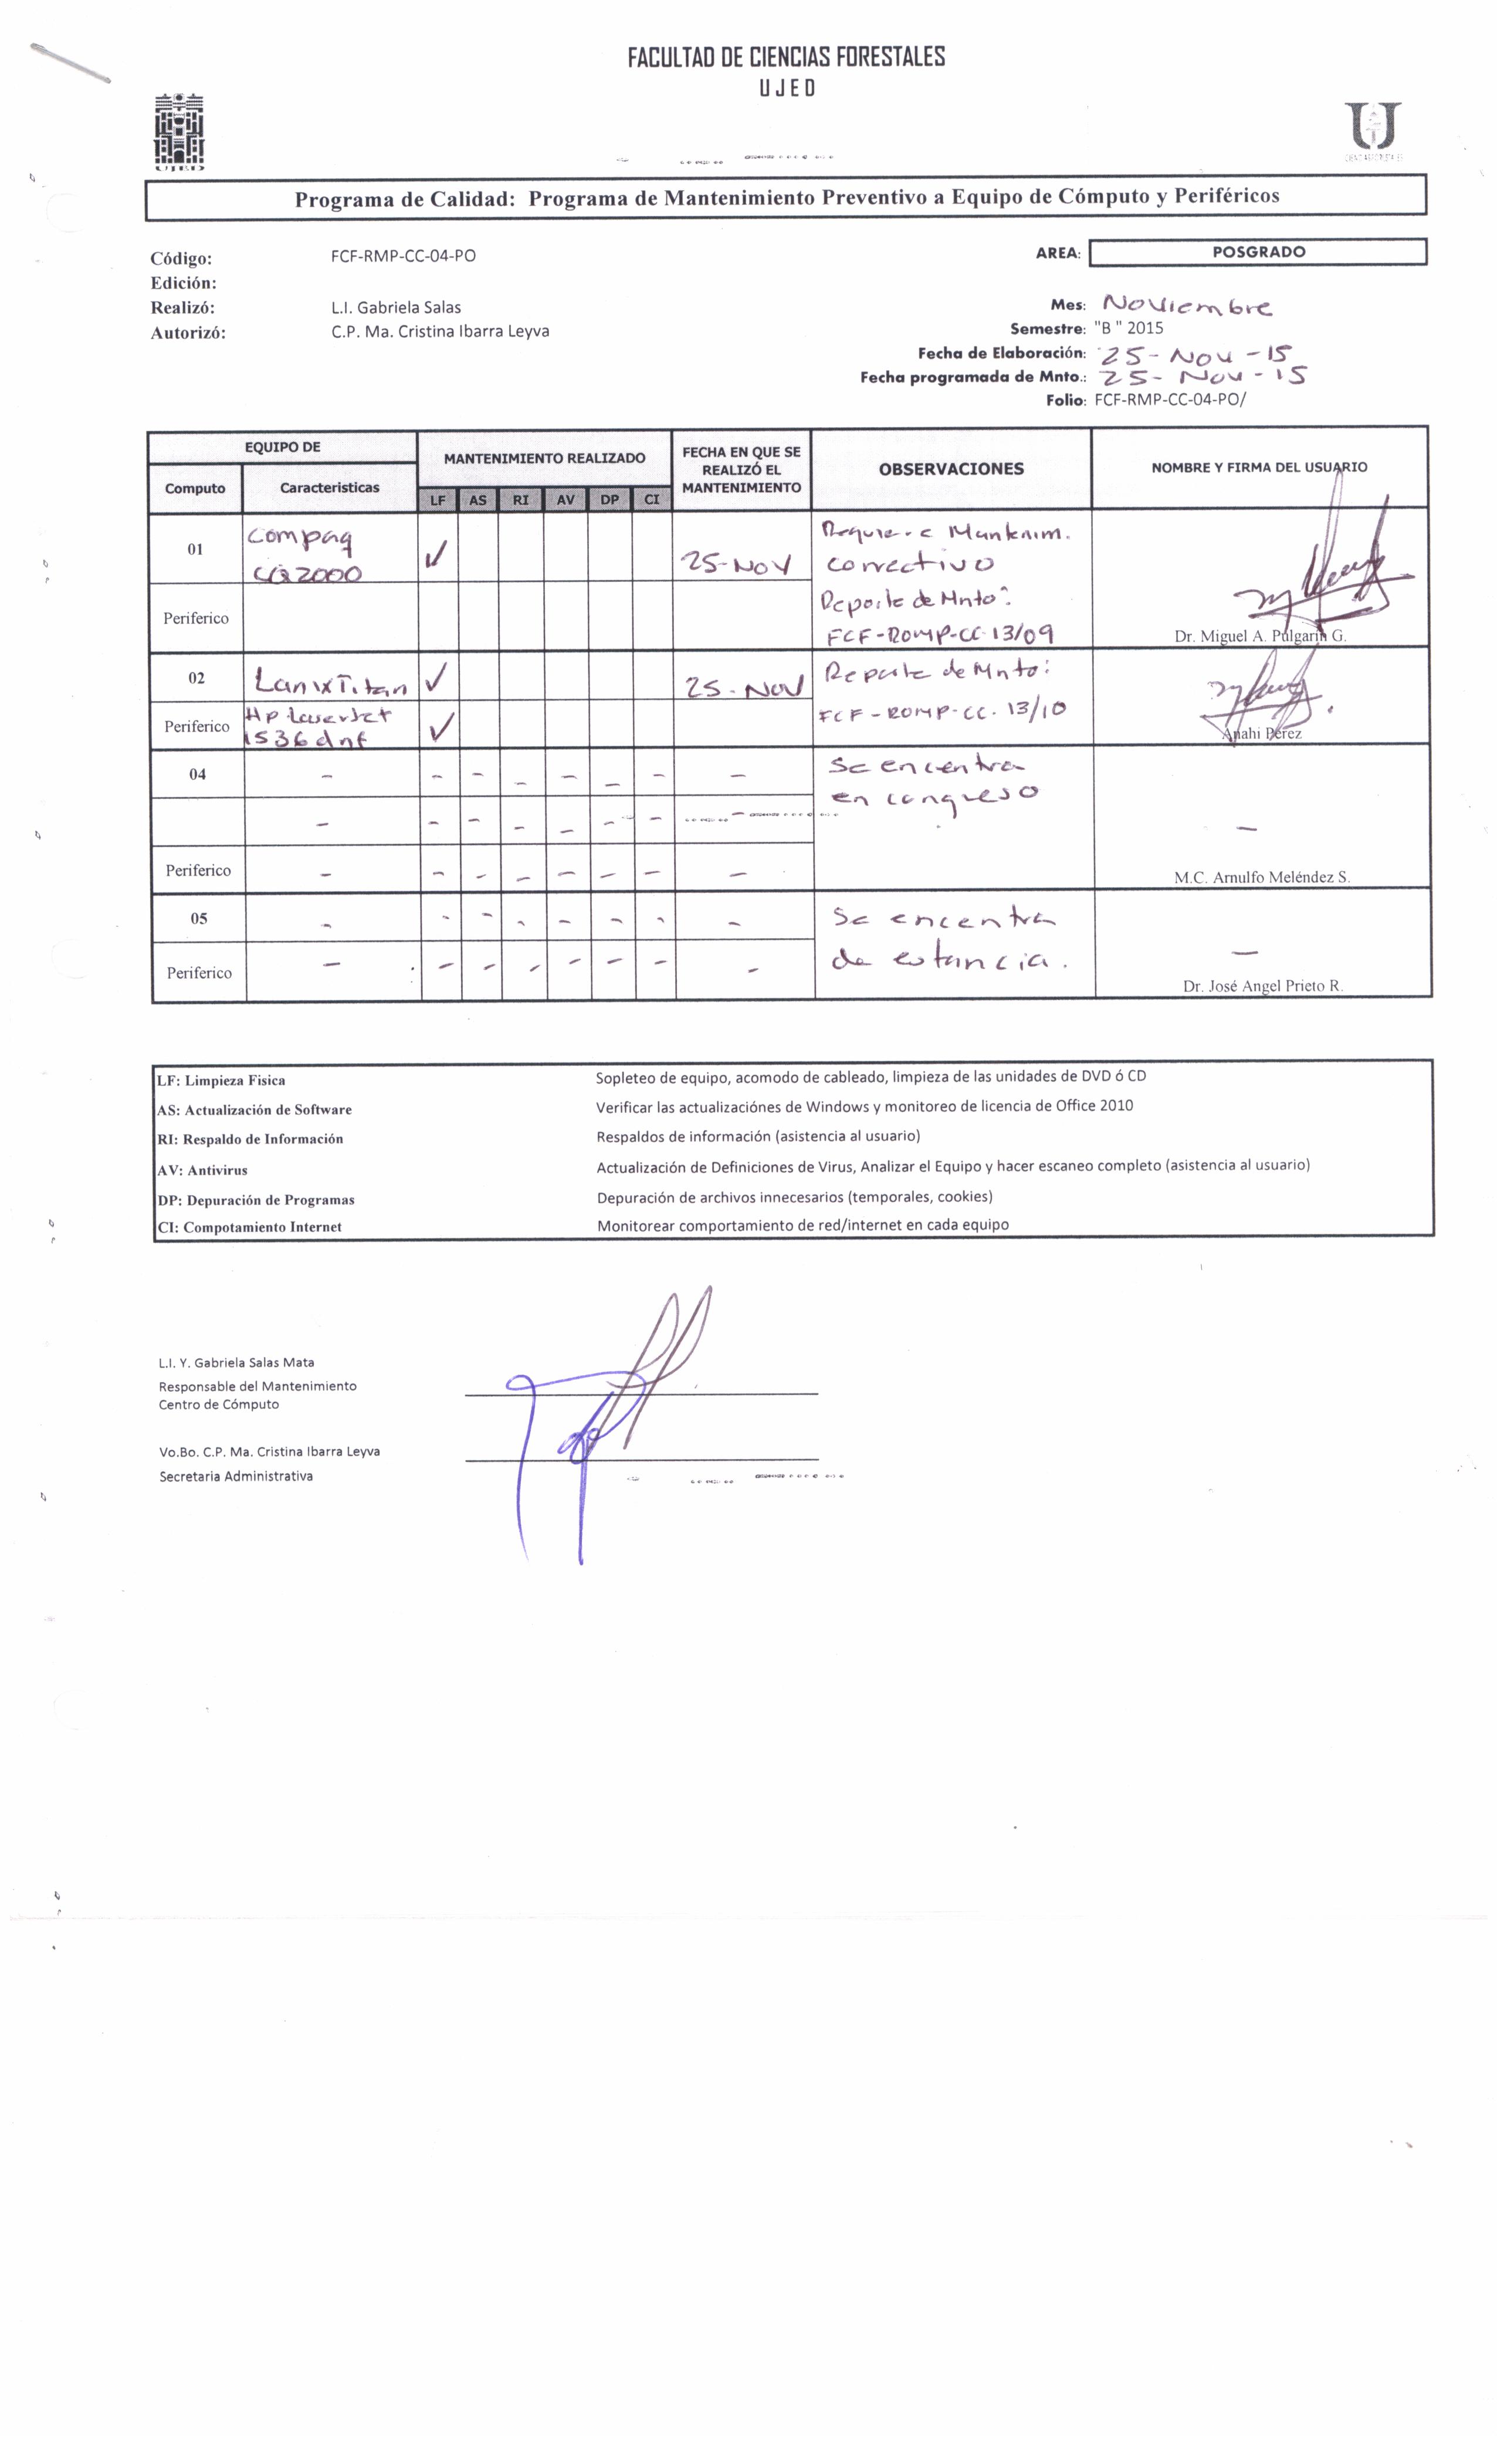 FACULTAD DE CIENCIAS FORESTALES
UJED
UJED
Programa de Calidad: Programa de Mantenimiento Preventivo a Equipo de Cómputo y Periféricos
Código: FCF-RMP-CC-04-PO
AREA: POSGRADO
Edición:
Realizó: L.I. Gabriela Salas
Mes: Noviembre
Autorizó: C.P. Ma. Cristina Ibarra Leyva
Semestre: "B " 2015
Fecha de Elaboración: 25-Nov-15
Fecha programada de Mnto.: 25-Nov-15
Folio: FCF-RMP-CC-04-PO/
EQUIPO DE
MANTENIMIENTO REALIZADO
FECHA EN QUE SE REALIZÓ EL MANTENIMIENTO
OBSERVACIONES
NOMBRE Y FIRMA DEL USUARIO
Computo Caracteristicas
LF AS RI AV DP CI
01 Compaq CQ2000 ✓ 25-Nov
Requiere Mantenim.
correctivo
Periferico
Reporte de Mnto:
FCF-ROMP-CC-13/09
Dr. Miguel A. Pulgarin G.
02 Lanix Titan ✓ 25-Nov
Reporte de Mnto:
Periferico Hp LaserJet 1536dnf ✓
FCF-ROMP-CC-13/10
Anahi Pérez
04 - - - - - - - -
Se encentra
en congreso
- - - - - - - - -
Periferico - - - - - - - -
M.C. Arnulfo Meléndez S.
05 - - - - - - - -
Se encentra
de estancia.
Periferico - - - - - - - - -
Dr. José Angel Prieto R.
LF: Limpieza Fisica Sopleteo de equipo, acomodo de cableado, limpieza de las unidades de DVD ó CD
AS: Actualización de Software Verificar las actualizaciónes de Windows y monitoreo de licencia de Office 2010
RI: Respaldo de Información Respaldos de información (asistencia al usuario)
AV: Antivirus Actualización de Definiciones de Virus, Analizar el Equipo y hacer escaneo completo (asistencia al usuario)
DP: Depuración de Programas Depuración de archivos innecesarios (temporales, cookies)
CI: Compotamiento Internet Monitorear comportamiento de red/internet en cada equipo
L.I. Y. Gabriela Salas Mata
Responsable del Mantenimiento
Centro de Cómputo
Vo.Bo. C.P. Ma. Cristina Ibarra Leyva
Secretaria Administrativa